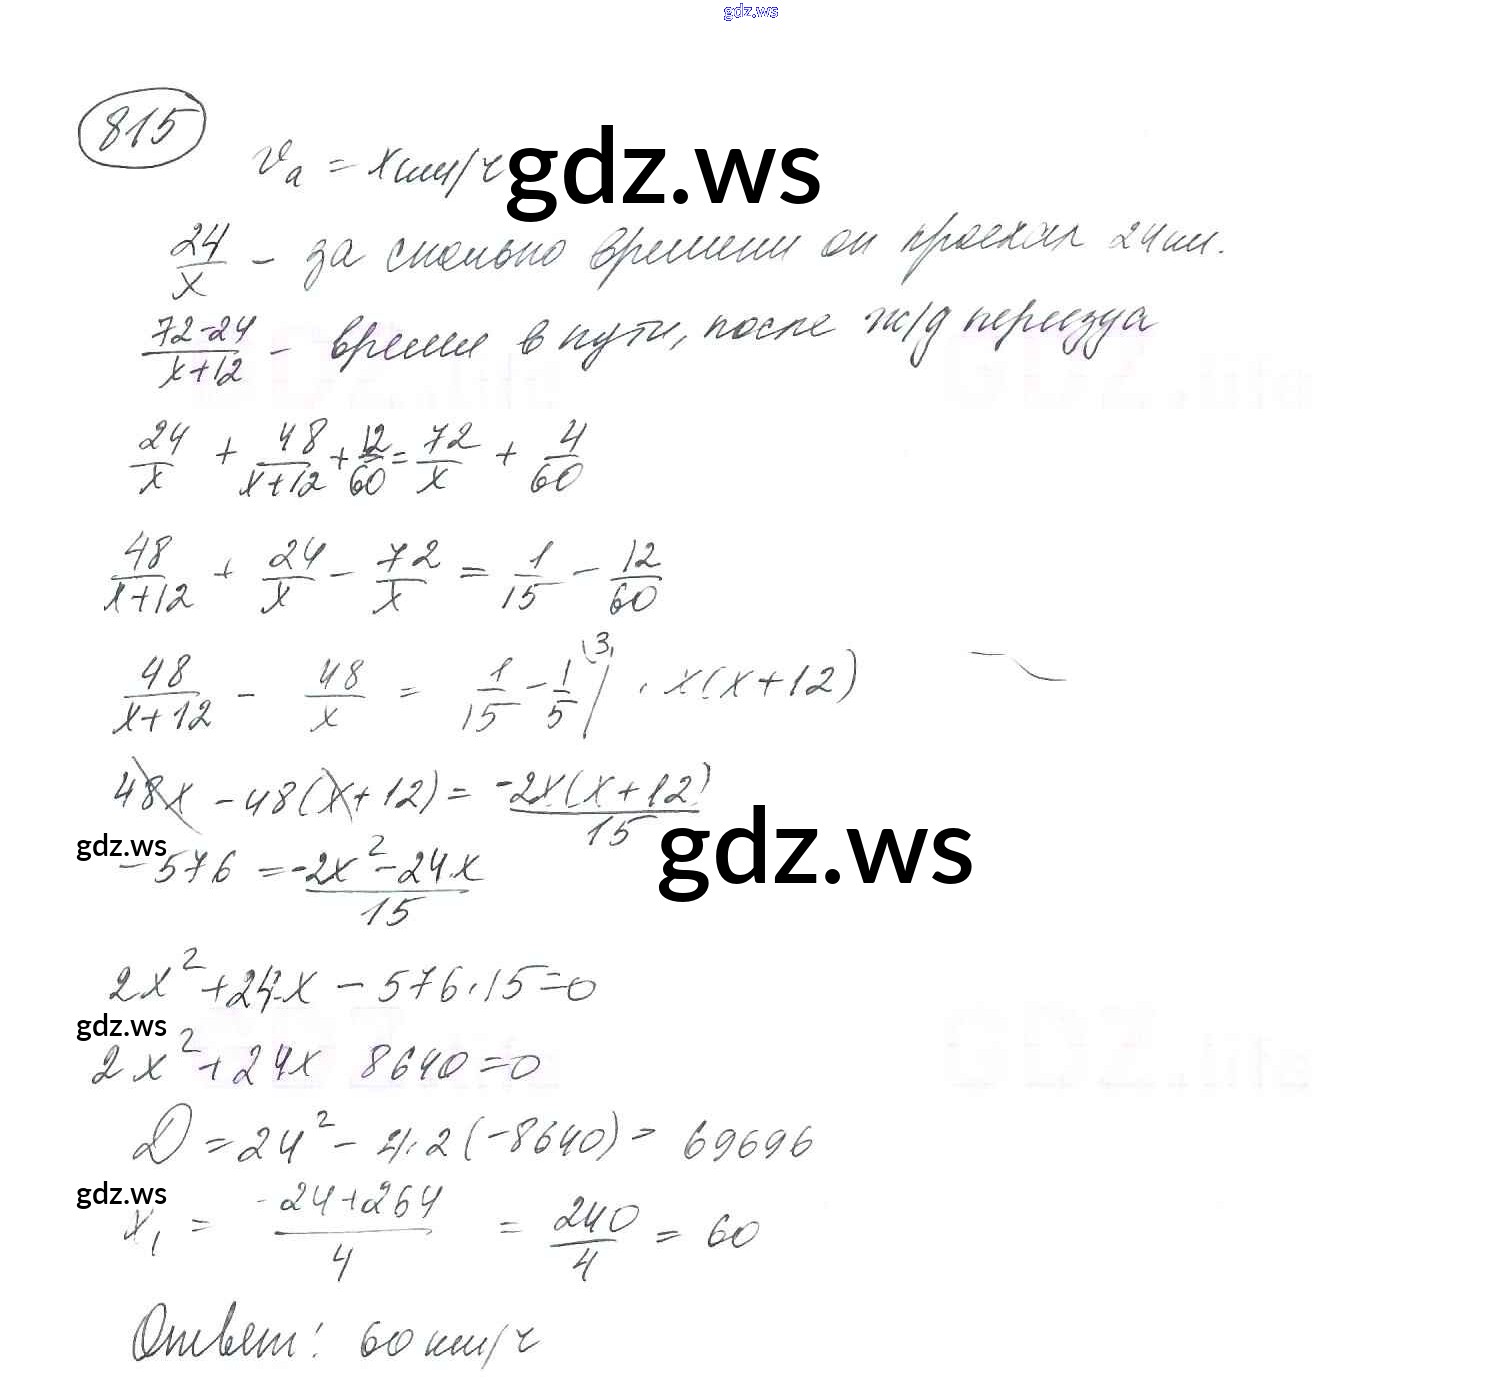 gdz.ws
815
Vₐ = x км/ч gdz.ws
24/x - за сколько времени он проехал 24 км.
(72-24)/(x+12) - время в пути, после ж/д переезда
24/x + 48/(x+12) + 12/60 = 72/x + 4/60
48/(x+12) + 24/x - 72/x = 1/15 - 12/60
48/(x+12) - 48/x = 1/15 - 1/5 (3 | · x(x+12)
48x - 48(x+12) = -2x(x+12)/15
gdz.ws
gdz.ws
-576 = (-2x² - 24x)/15
2x² + 24x - 576·15 = 0
gdz.ws
2x² + 24x 8640 = 0
D = 24² - 4·2(-8640) = 69696
gdz.ws
x₁ = (-24+264)/4 = 240/4 = 60
Ответ: 60 км/ч